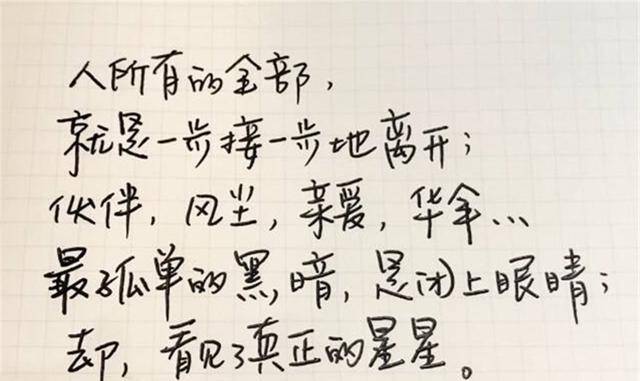 人所有的全部，
就是一步接一步地离开；
伙伴，风尘，亲爱，华年…
最孤单的黑暗，是闭上眼睛；
却，看见了真正的星星。